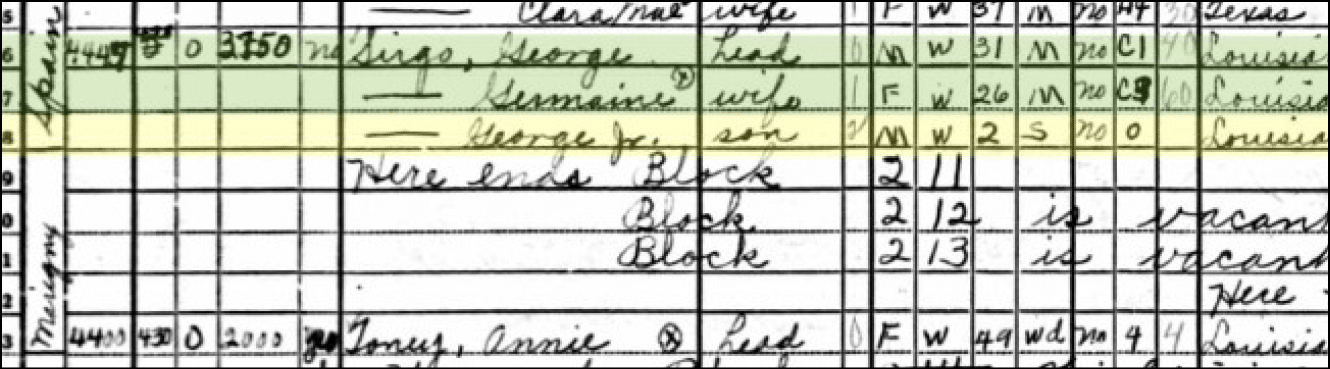 5 — Clara Mae wife 1 F W 37 M no H4 30 Texas
Spain
6 4449 0 3750 no Sirgo, George Head 0 M W 31 M no C1 40 Louisia
7 — Germaine ⓧ wife 1 F W 26 M no C3 60 Louisia
8 — George Jr. son 2 M W 2 S no 0 Louisia
9 Here ends Block 211
0 Block 212 is vacant
1 Block 213 is vacant
2 Here
Marigny
3 4400 430 0 2000 Toney, Annie ⓧ Head 0 F W 49 wd no 4 4 Louisia